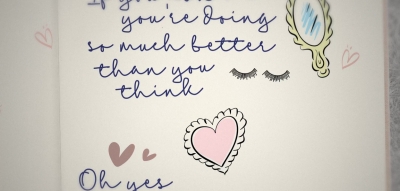 If you
you're doing
so much better
than you
think
Oh yes